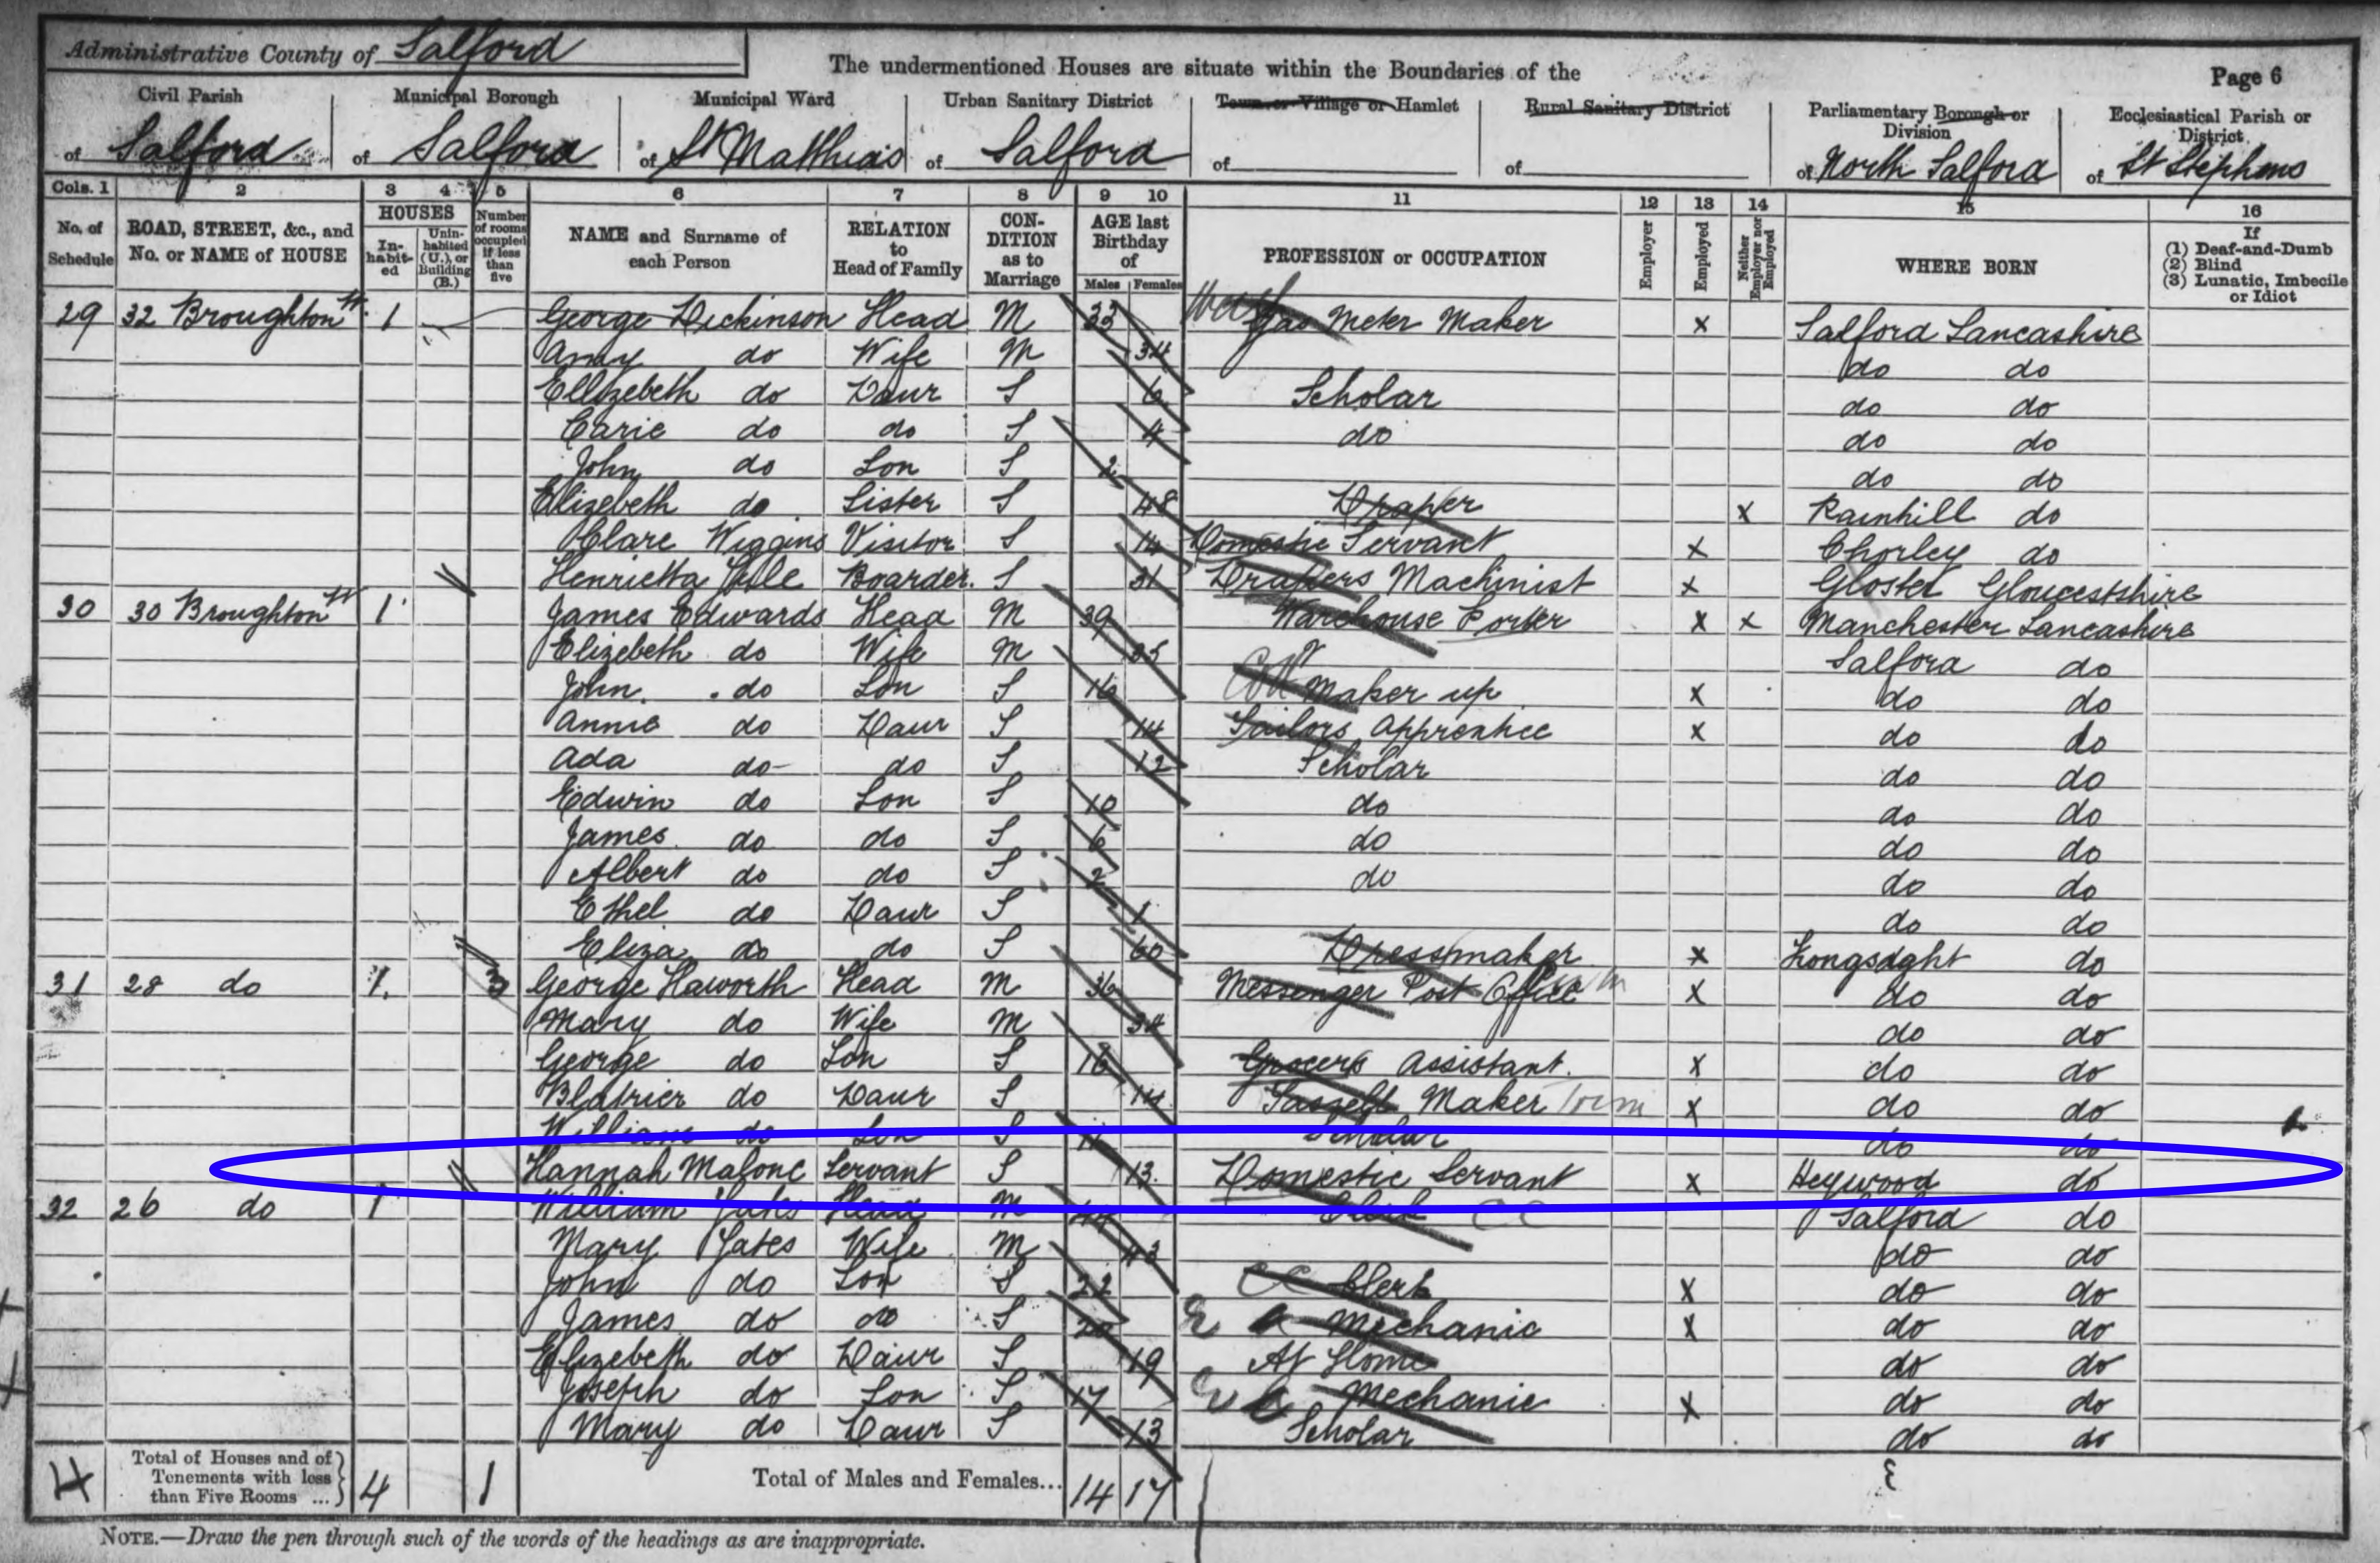 Administrative County of Salford
The undermentioned Houses are situate within the Boundaries of the
Page 6
Civil Parish of Salford
Municipal Borough of Salford
Municipal Ward of St Matthias
Urban Sanitary District of Salford
Town or Village or Hamlet of
Rural Sanitary District of
Parliamentary Borough or Division of North Salford
Ecclesiastical Parish or District of St Stephens
Cols. 1 2 3 4 5 6 7 8 9 10 11 12 13 14 15 16
No. of Schedule
ROAD, STREET, &c., and No. or NAME of HOUSE
HOUSES
In-habit-ed
Unin-habited (U.), or Building (B.)
Number of rooms occupied if less than five
NAME and Surname of each Person
RELATION to Head of Family
CON-DITION as to Marriage
AGE last Birthday of
Males Females
PROFESSION or OCCUPATION
Employer
Employed
Neither Employer nor Employed
WHERE BORN
If
(1) Deaf-and-Dumb
(2) Blind
(3) Lunatic, Imbecile or Idiot
29 32 Broughton St 1 George Dickinson Head M 33 Gas Meter Maker X Salford Lancashire
Amy do Wife M 34 do do
Ellizebeth do Daur S 6 Scholar do do
Carie do do S 4 do do do
John do Son S 2 do do
Elizebeth do Sister S 48 Draper X Rainhill do
Clare Wiggins Visitor S 14 Domestic Servant X Chorley do
Henrietta Boarder. S 31 Drapers Machinist X Gloster Gloucestshire
30 30 Broughton St 1 James Edwards Head M 39 Warehouse Porter X X Manchester Lancashire
Elizebeth do Wife M 35 Salford do
John do Son S 16 Maker up X do do
Annie do Daur S 14 Tailors Apprentice X do do
Ada do do S 12 Scholar do do
Edwin do Son S 10 do do do
James do do S 6 do do do
Albert do do S 2 do do do
Ethel do Daur S 1 do do
Eliza do do S 60 Dressmaker X Longsight do
31 28 do 1 3 George Haworth Head M 36 Messenger Post Office X do do
Mary do Wife M 34 do do
George do Son S 16 Grocers Assistant. X do do
do Daur S 14 Maker X do do
William do Son S 11 Scholar do do
Hannah Malone Servant S 13 Domestic Servant X Heywood do
32 26 do 1 William Yates Head M 44 Clerk CC Salford do
Mary Yates Wife M 43 do do
John do Son S 22 CC Clerk X do do
James do do S 20 Mechanic X do do
Elizebeth do Daur S 19 At Home do do
Joseph do Son S 17 Mechanic X do do
Mary do Daur S 13 Scholar do do
4 Total of Houses and of Tenements with less than Five Rooms ... 4 1 Total of Males and Females... 14 17
NOTE.—Draw the pen through such of the words of the headings as are inappropriate.